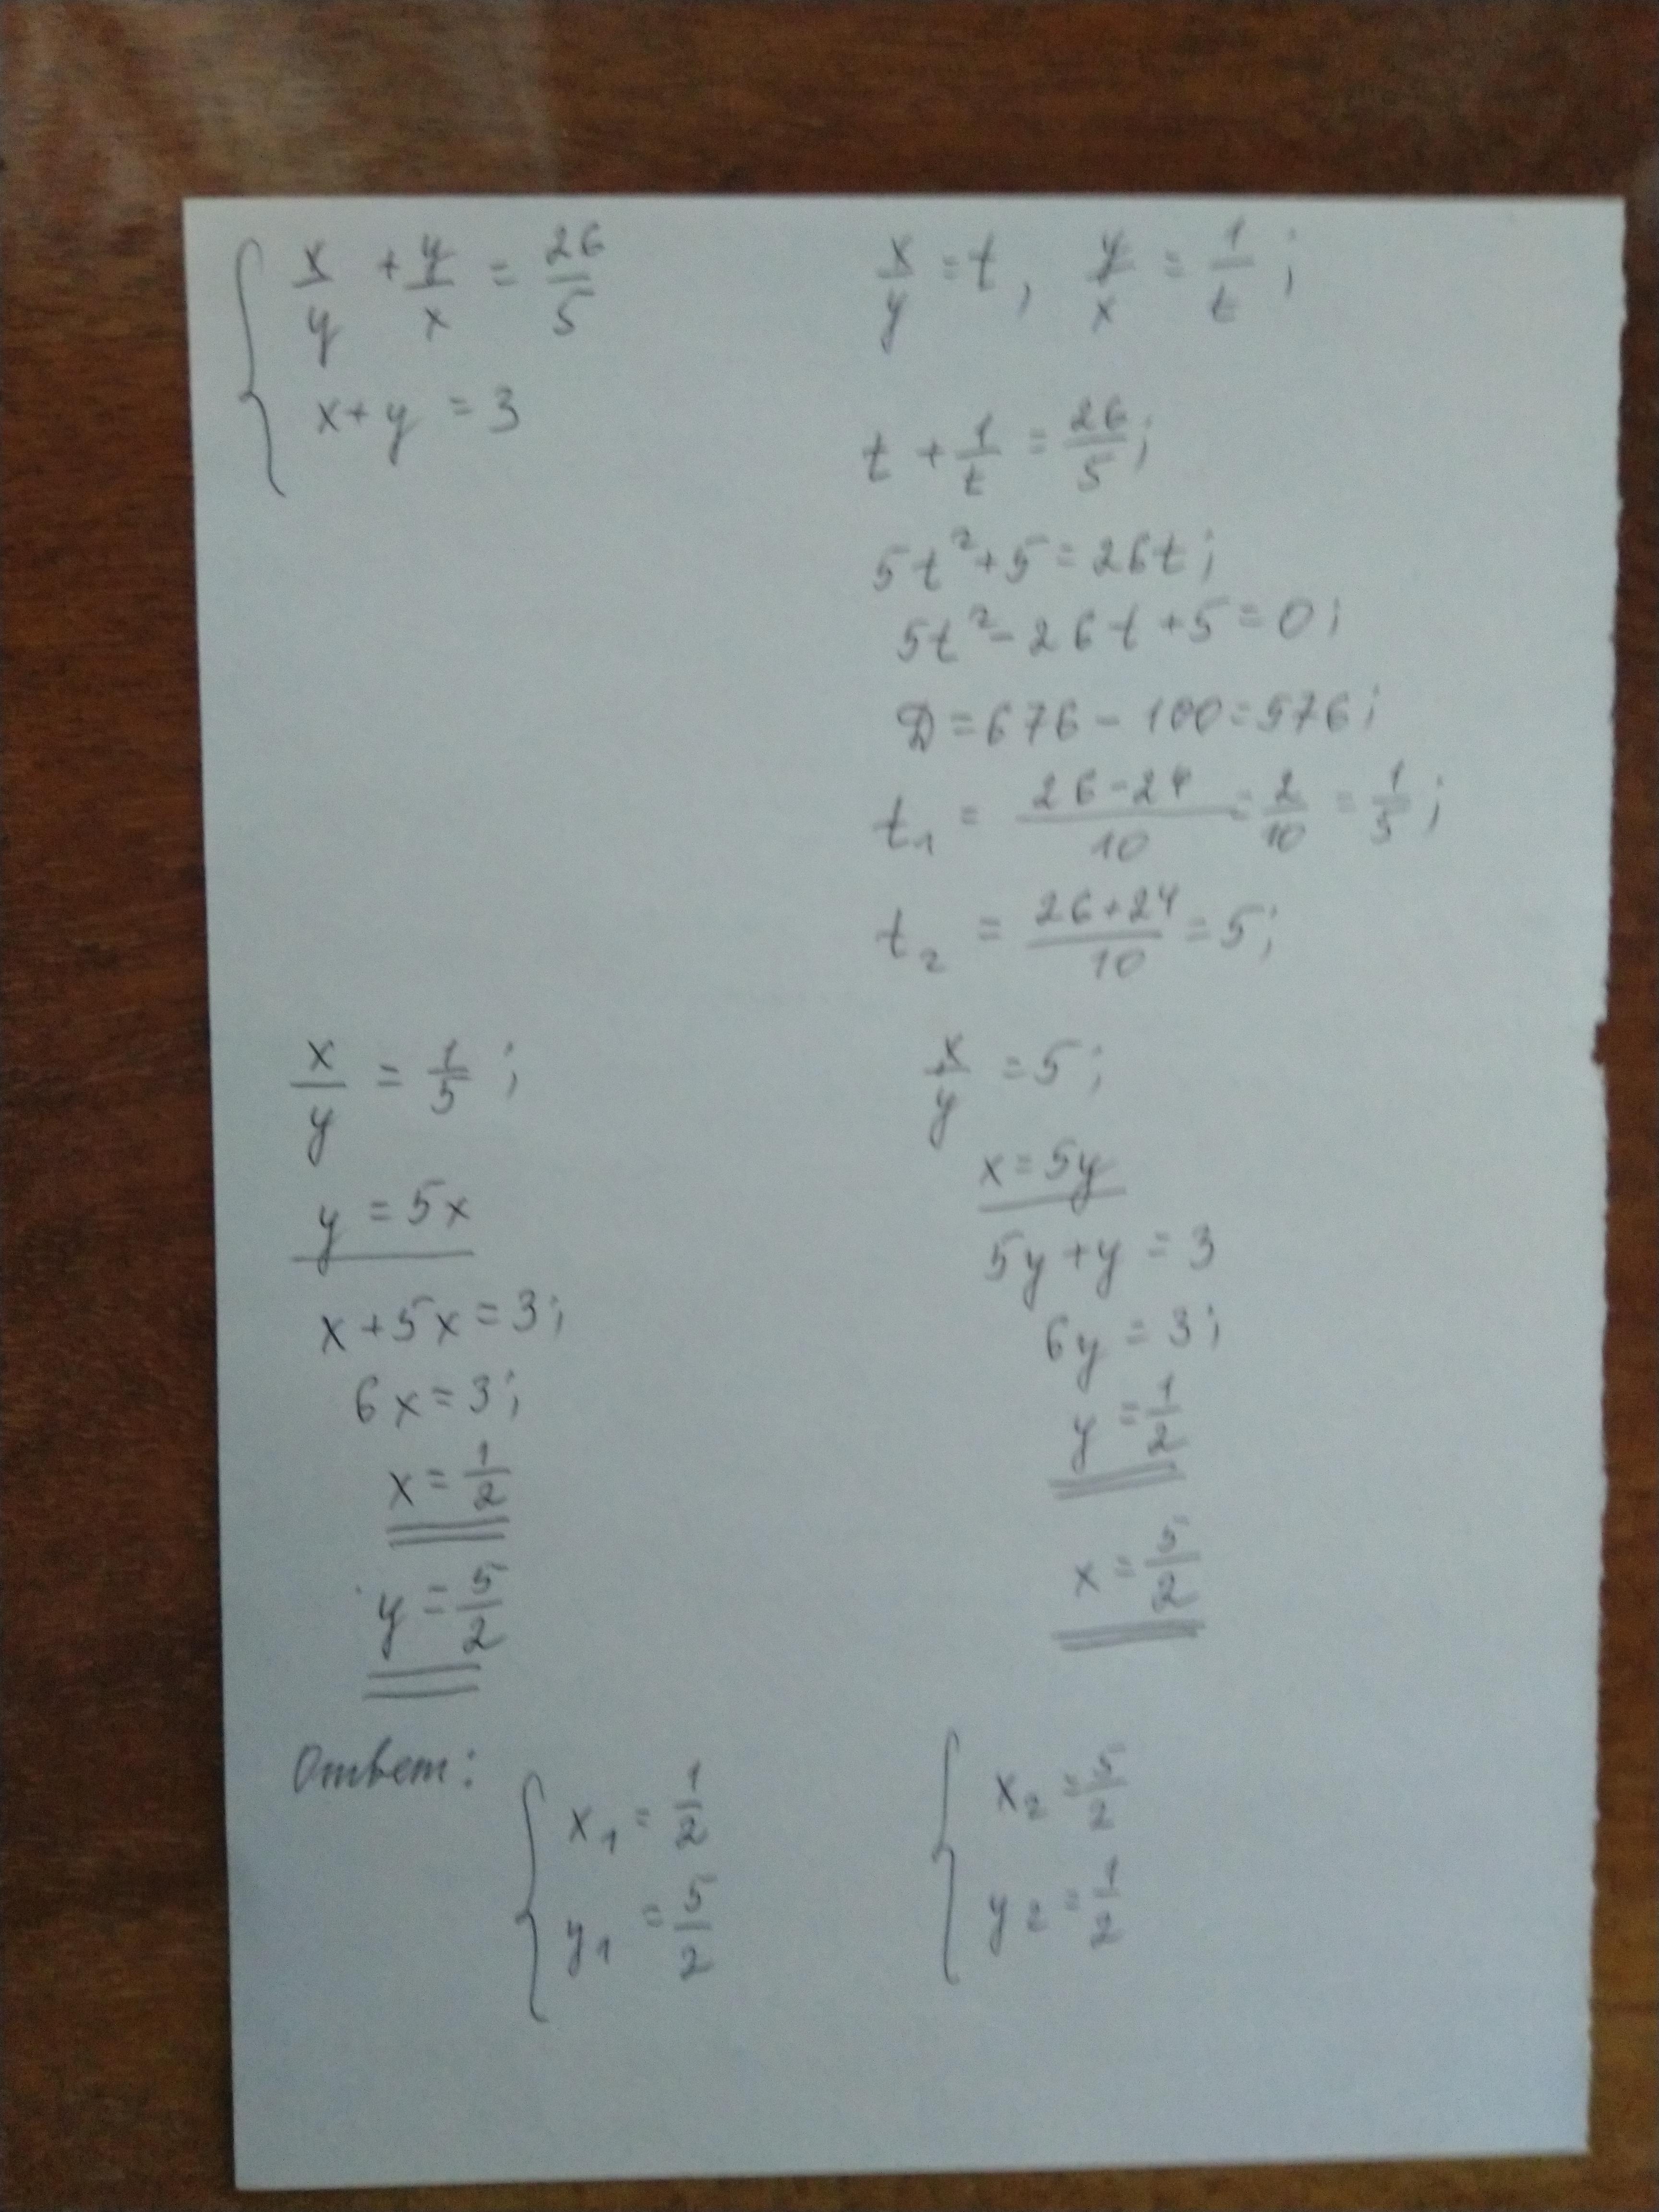 x/y + y/x = 26/5
x+y = 3
x/y = t, y/x = 1/t;
t + 1/t = 26/5;
5t²+5=26t;
5t²-26t+5=0;
D=676-100=576;
t₁ = (26-24)/10 = 2/10 = 1/5;
t₂ = (26+24)/10 = 5;
x/y = 1/5;
y=5x
x+5x=3;
6x=3;
x=1/2
y=5/2
x/y = 5;
x=5y
5y+y=3
6y=3;
y=1/2
x=5/2
Ответ:
x₁=1/2
y₁=5/2
x₂=5/2
y₂=1/2